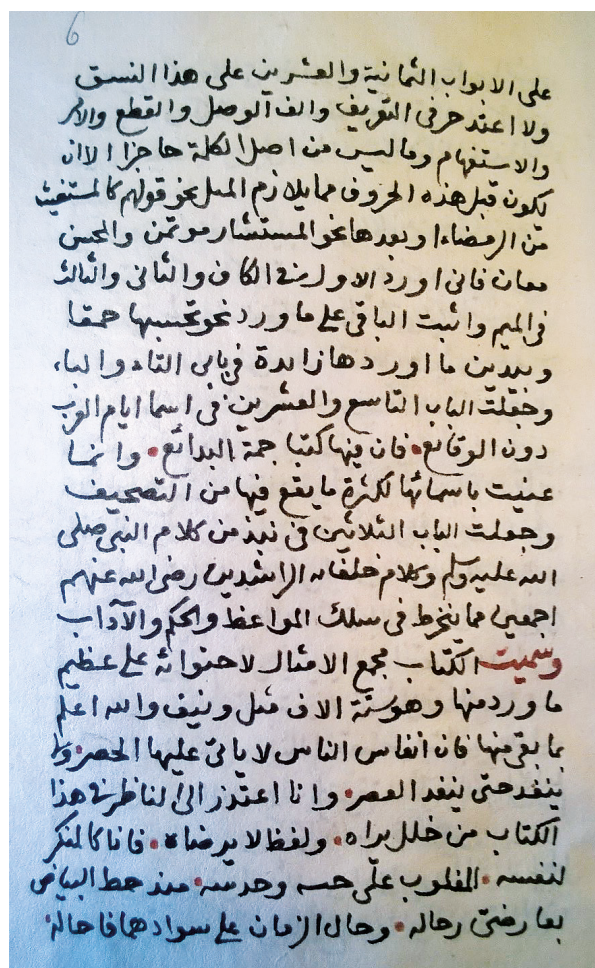 6
على الابواب الثمانية والعشرين على هذا النسق
ولا اعتد حرفى التعريف والف الوصل والقطع والامر
والاستفهام وما ليس من اصل الكلة حاجزا الا ان
تكون قبل هذه الحروف مما يلازم المثل نحو قولهم كالمستغيث
من الرمضاء او بعدها نحو المستشار موتمن والمحسن
معان فانى اورد الاول فى الكاف والثانى والثالث
فى الميم واثبت الباقى على ما ورد نحو تحسبها حمقا
وبيدين ما اوردها زايدة فى بابى التاء والباء
وجعلت الباب التاسع والعشرين فى اسما ايام العرب
دون الوقائع فان فيها كتبا جمة البدائع وانما
عنيت باسمائها لكثرة ما يقع فيها من التصحيف
وجعلت الباب الثلاثين فى نبذ من كلام النبى صلى
الله عليه وسلم وكلام خلفائه الراشدين رضى الله عنهم
اجمعين مما ينخرط فى سلك المواعظ والحكم والآداب
وسميت الكتاب مجمع الامثال لاحتوائه على عظيم
ما ورد منها وهو ستة الاف مثل ونيف والله اعلم
بما بقى منها فان انفاس الناس لا ياتى عليها الحصر ولا
ينفد حتى ينفد العصر وانا اعتذر الى الناظر فى هذا
الكتاب من خلل يراه ولفظ لا يرضاه فانا كالمنكر
لنفسه المغلوب على حسه وحدسه منذ حط البياض
بعارضى رحاله وحال الزمان على سوادهما فاحاله